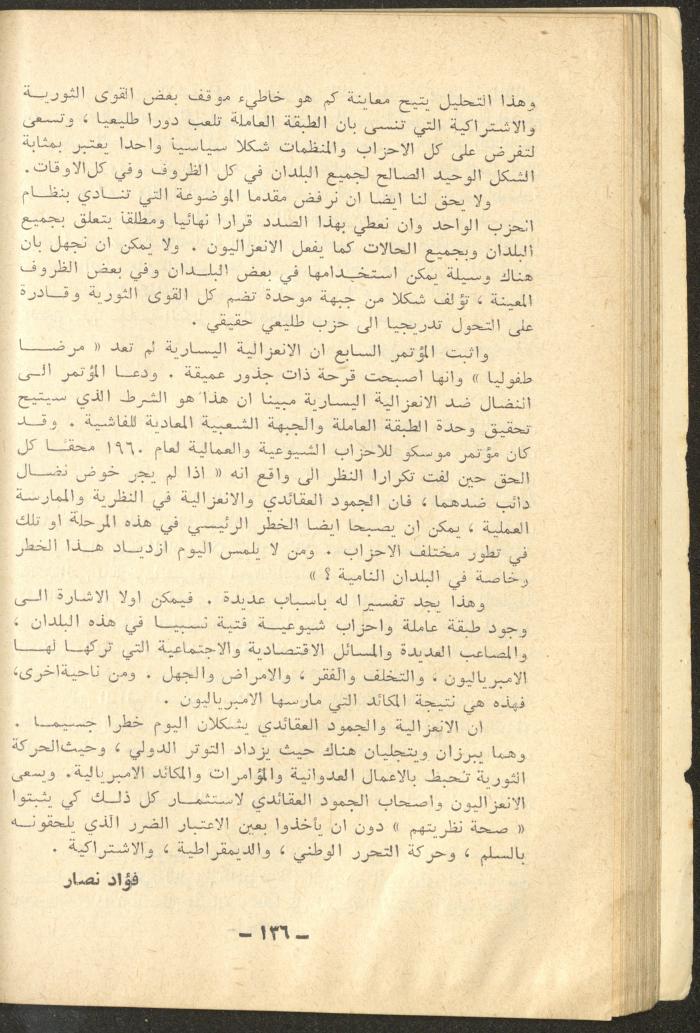 وهذا التحليل يتيح معاينة كم هو خاطيء موقف بعض القوى الثوريـة
والاشتراكية التي تنسى بان الطبقة العاملة تلعب دورا طليعيا ، وتسعى
لتفرض على كل الاحزاب والمنظمات شكلا سياسيا واحدا يعتبر بمثابة
الشكل الوحيد الصالح لجميع البلدان في كل الظروف وفي كل الاوقات.
ولا يحق لنا ايضا ان نرفض مقدما الموضوعة التي تنـادي بنظـام
انحزب الواحد وان نعطي بهذا الصدد قرارا نهائيا ومطلقا يتعلق بجميع
البلدان وبجميع الحالات كما يفعل الانعزاليون . ولا يمكن ان نجهل بان
هناك وسيلة يمكن استخـدامها في بعض البلـدان وفي بعض الظروف
المعينة ، تؤلف شكلا من جبهة موحدة تضم كل القوى الثورية وقـادرة
على التحول تدريجيا الى حزب طليعي حقيقي .
واثبت المؤتمر السابع ان الانعزالية اليسارية لم تعد « مرضـا
طفوليا » وانها اصبحت قرحة ذات جذور عميقة . ودعـا المؤتمر الـى
النضال ضد الانعزالية اليسارية مبينا ان هذا هو الشرط الذي سيتيح
تحقيق وحدة الطبقة العاملة والجبهة الشعبية المعادية للفاشية . وقـد
كان مؤتمر موسكو للاحزاب الشيوعية والعمالية لعام ١٩٦٠ محقـا كل
الحق حين لفت تكرارا النظر الى واقع انه « اذا لم يجر خوض نضـال
دائب ضدهما ، فان الجمود العقائدي والانعزالية في النظرية والممارسة
العملية ، يمكن ان يصبحا ايضا الخطر الرئيسي في هذه المرحلة او تلك
في تطور مختلف الاحزاب . ومن لا يلمس اليوم ازديـاد هـذا الخطر
رخاصة في البلدان النامية ؟ »
وهذا يجد تفسيرا له باسباب عديدة . فيمكن اولا الاشارة الـى
وجود طبقة عاملة واحزاب شيوعيـة فتية نسبيـا في هذه البلدان ،
والمصاعب العديدة والمسائل الاقتصادية والاجتماعية التي تركهـا لهـا
الامبرياليون ، والتخلف والفقر ، والامراض والجهل . ومن ناحية اخرى،
فهذه هي نتيجة المكائد التي مارسها الامبرياليون .
ان الانعزالية والجمود العقائدي يشكلان اليوم خطرا جسيمـا .
وهما يبرزان ويتجليان هناك حيث يزداد التوتر الدولي ، وحيث الحركة
الثورية تحبط بالاعمال العدوانية والمؤامرات والمكائد الامبريالية. ويسعى
الانعزاليون واصحاب الجمود العقائدي لاستثمـار كل ذلـك كي يثبتوا
« صحة نظريتهم » دون ان يأخذوا بعين الاعتبار الضرر الذي يلحقونـه
بالسلم ، وحركة التحرر الوطني ، والديمقراطية ، والاشتراكية .
فؤاد نصار
ـ ١٣٦ ـ